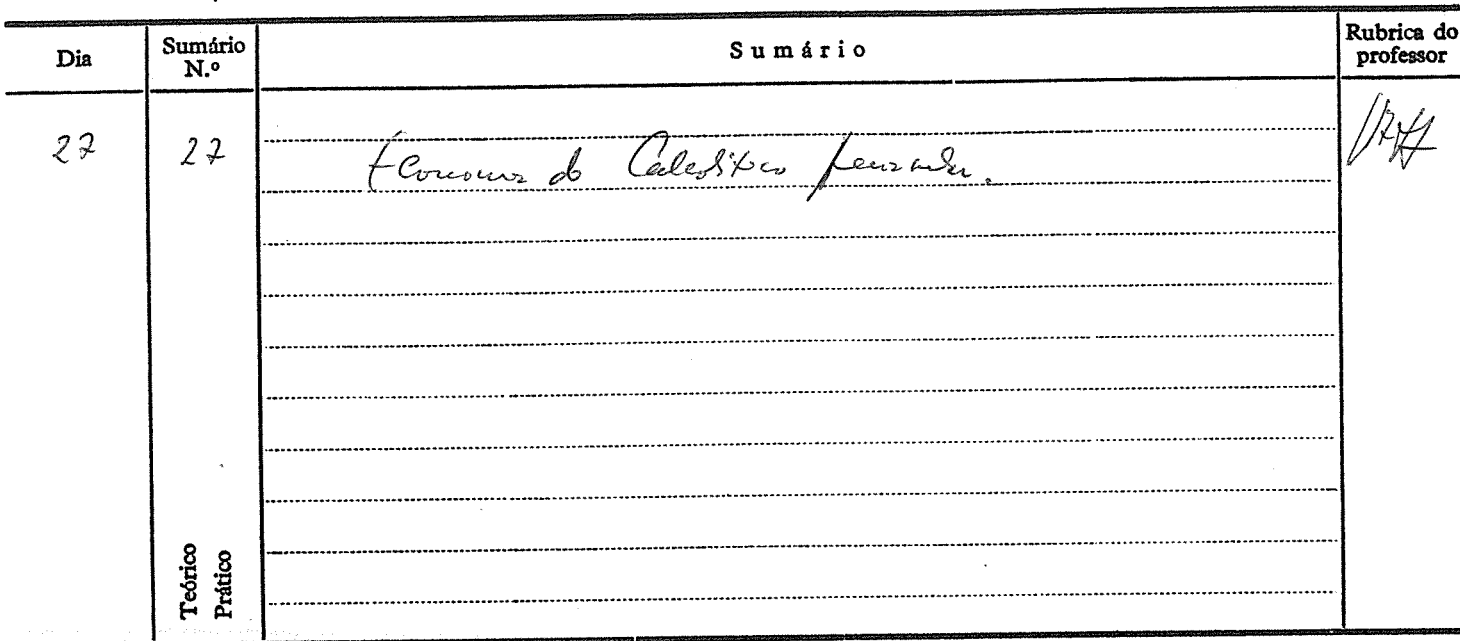 Dia
Sumário N.º
Sumário
Rubrica do professor
27
27
Economia do Calcolítico peninsular.
Teórico
Prático